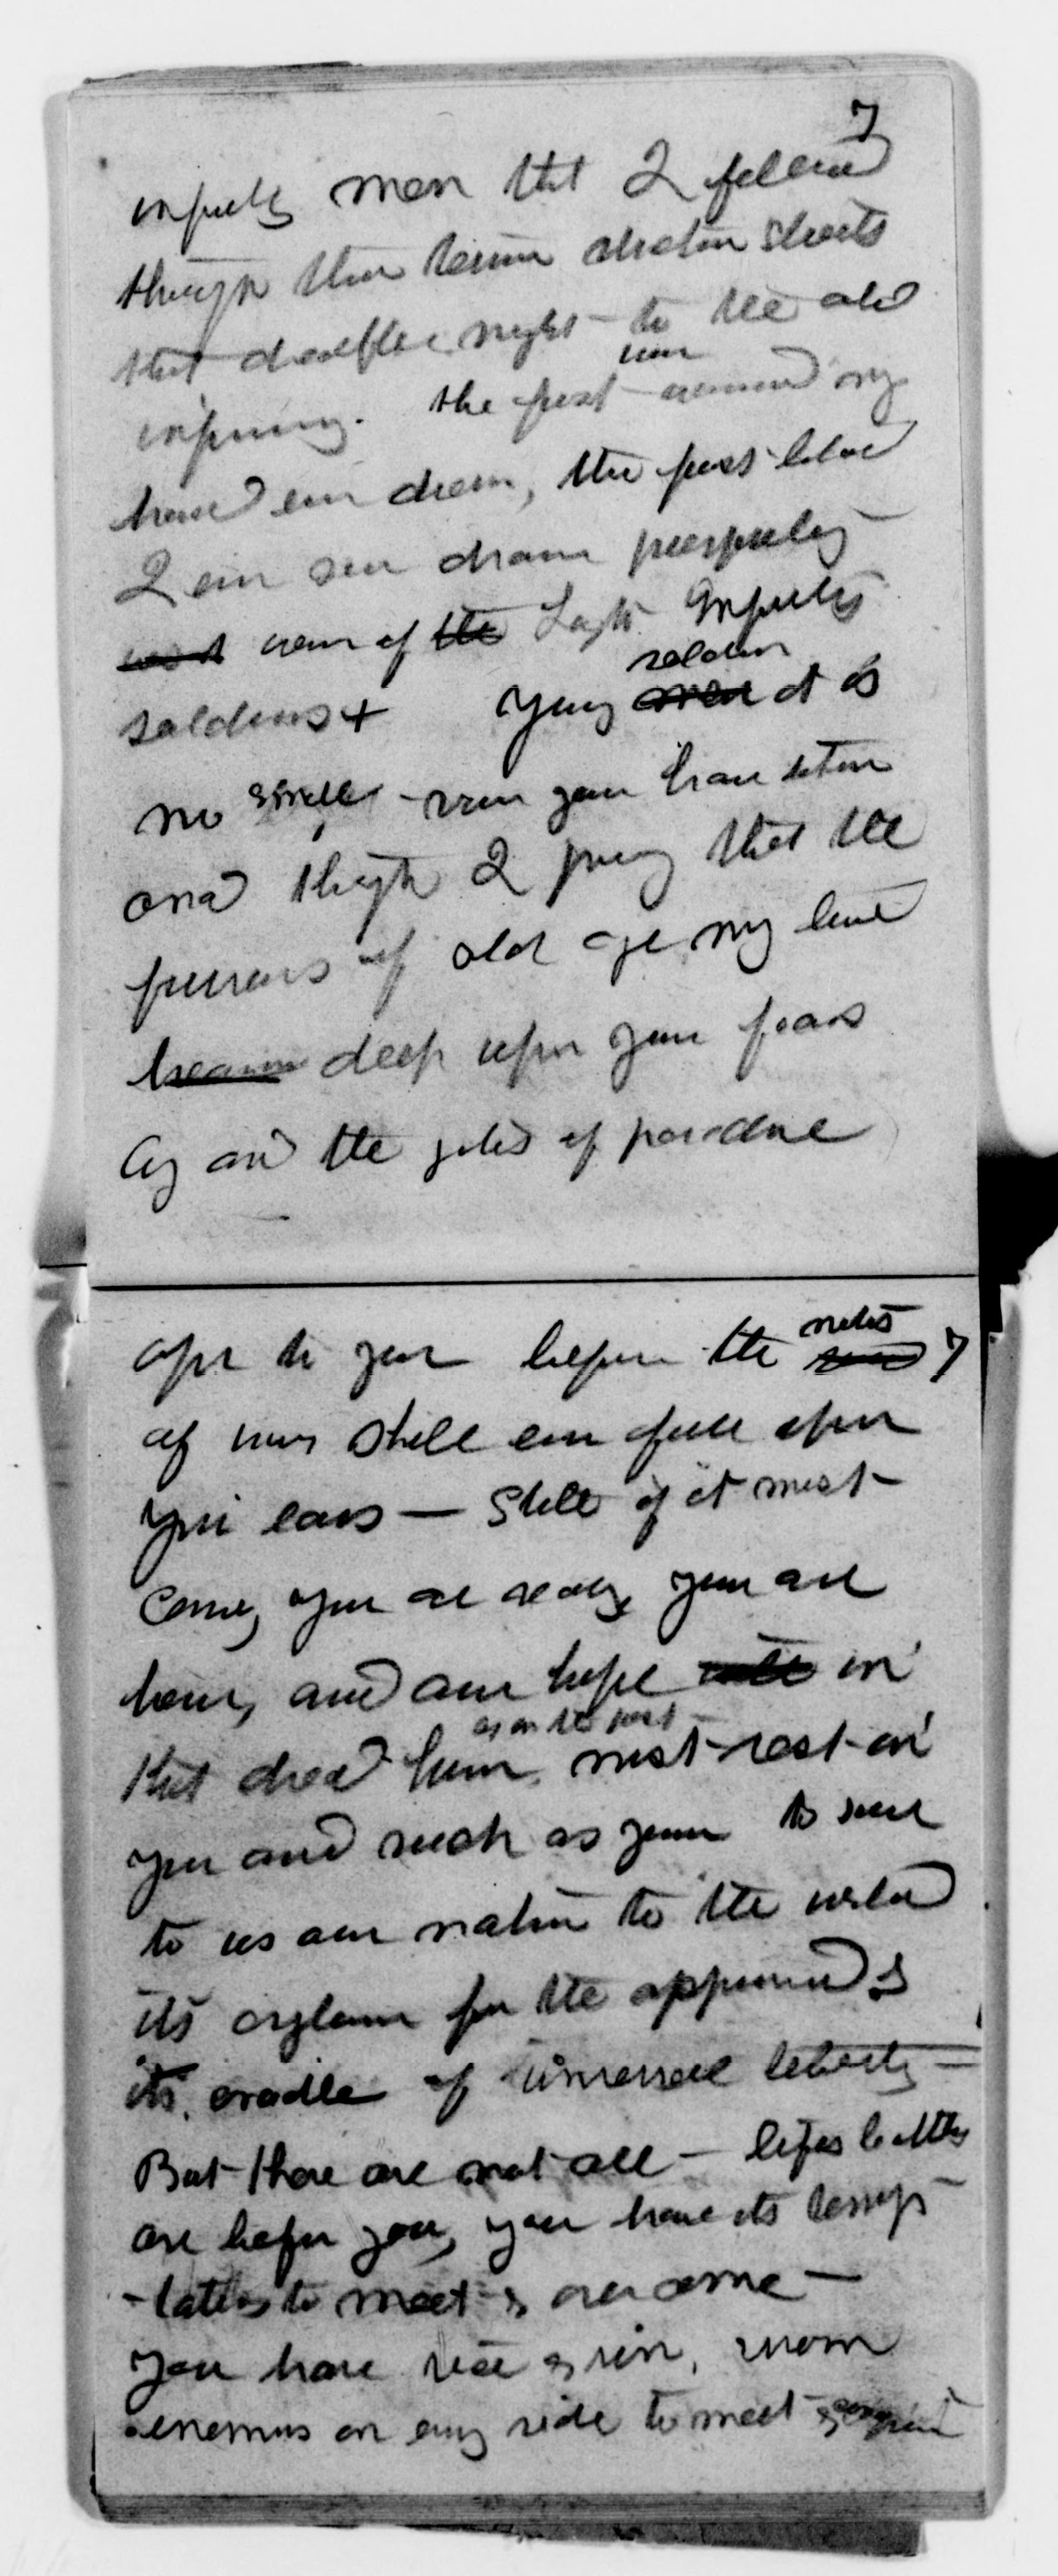 7
infantry men that I followed
through these terror stricken streets
that dreadful night to the old
infirmary. the first armed men my
had ever drawn, the first blood
I ever saw drawn
were of Light Infantry
soldiers + Young soldier it is
no small you have
and though I pray that the
furrows of old age may line
deep upon your
Ay and the gates of paradise
open to you before the notes 7
of war shall ever fall upon
your ears — Still if it must
come, you are ready you are
here, and our hope in
that dread hour, as in the past must rest on
you and such as you to save
to us our nation to the world
its asylum for the oppressed &
its cradle of universal liberty —
But these are not all — lifes battles
are before you, you have its temp
-tations to meet & overcome —
You have vice & sin, sworn
enemies on every side to meet &